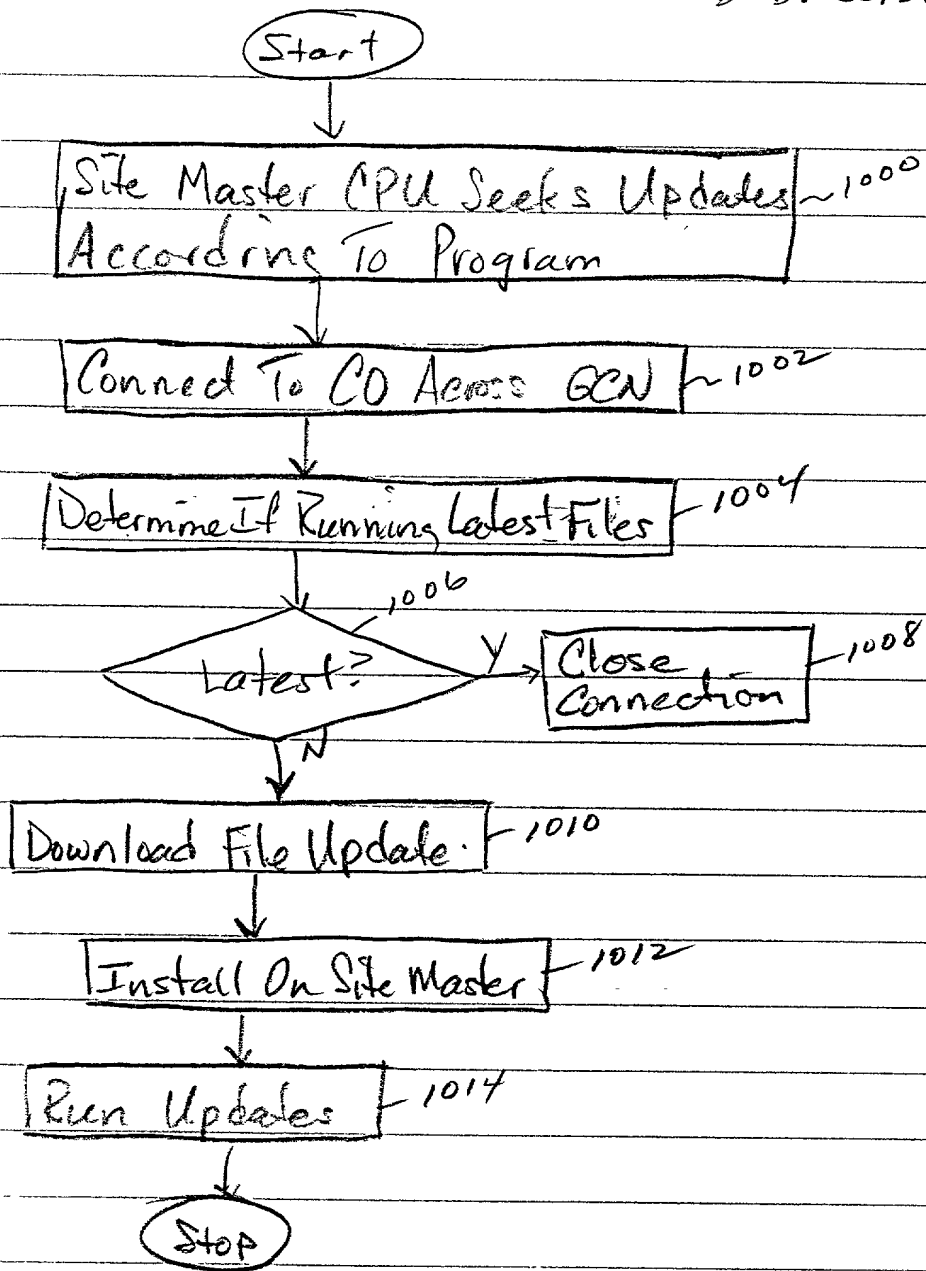 Start
Site Master CPU Seeks Updates ~1000
According To Program
Connect To CO Across GCN ~1002
Determine If Running Latest Files 1004
1006
Latest? Y
Close 1008
Connection
N
Download File Update. 1010
Install On Site Master 1012
Run Updates 1014
Stop